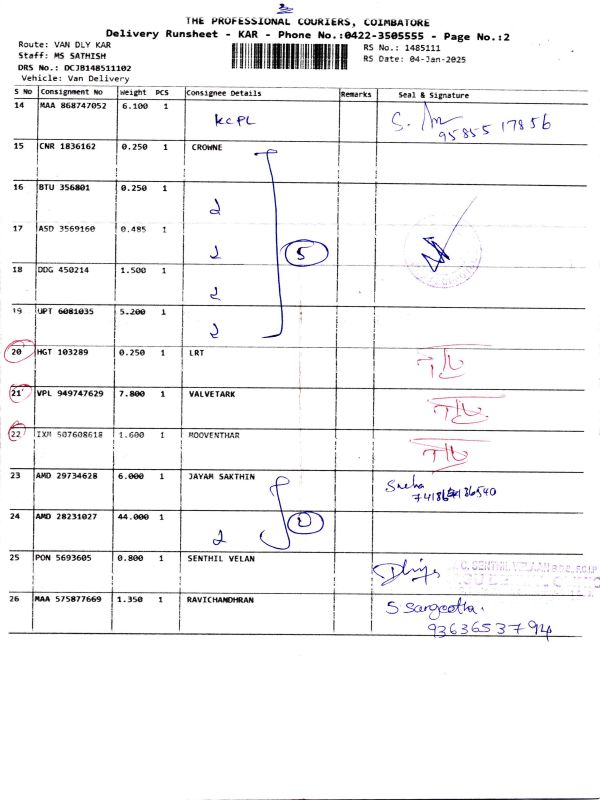 2
THE PROFESSIONAL COURIERS, COIMBATORE
Delivery Runsheet - KAR - Phone No.:0422-3505555 - Page No.:2
Route: VAN DLY KAR
RS No.: 1485111
Staff: MS SATHISH
RS Date: 04-Jan-2025
DRS No.: DCJB148511102
Vehicle: Van Delivery
S No Consignment No Weight PCS Consignee Details Remarks Seal & Signature
14 MAA 868747052 6.100 1 KCPL S.
95855 17856
15 CNR 1836162 0.250 1 CROWNE
16 BTU 356801 0.250 1
17 ASD 3569160 0.485 1 5
18 DDG 450214 1.500 1
19 UPT 6081035 5.200 1
20 HGT 103289 0.250 1 LRT
21 VPL 949747629 7.800 1 VALVETARK
22 IXM 507608618 1.600 1 MOOVENTHAR
23 AMD 29734628 6.000 1 JAYAM SAKTHIN Sneha
24 AMD 28231027 44.000 1
25 PON 5693605 0.800 1 SENTHIL VELAN
26 MAA 575877669 1.350 1 RAVICHANDHRAN S Sangeetha.
93636537 94